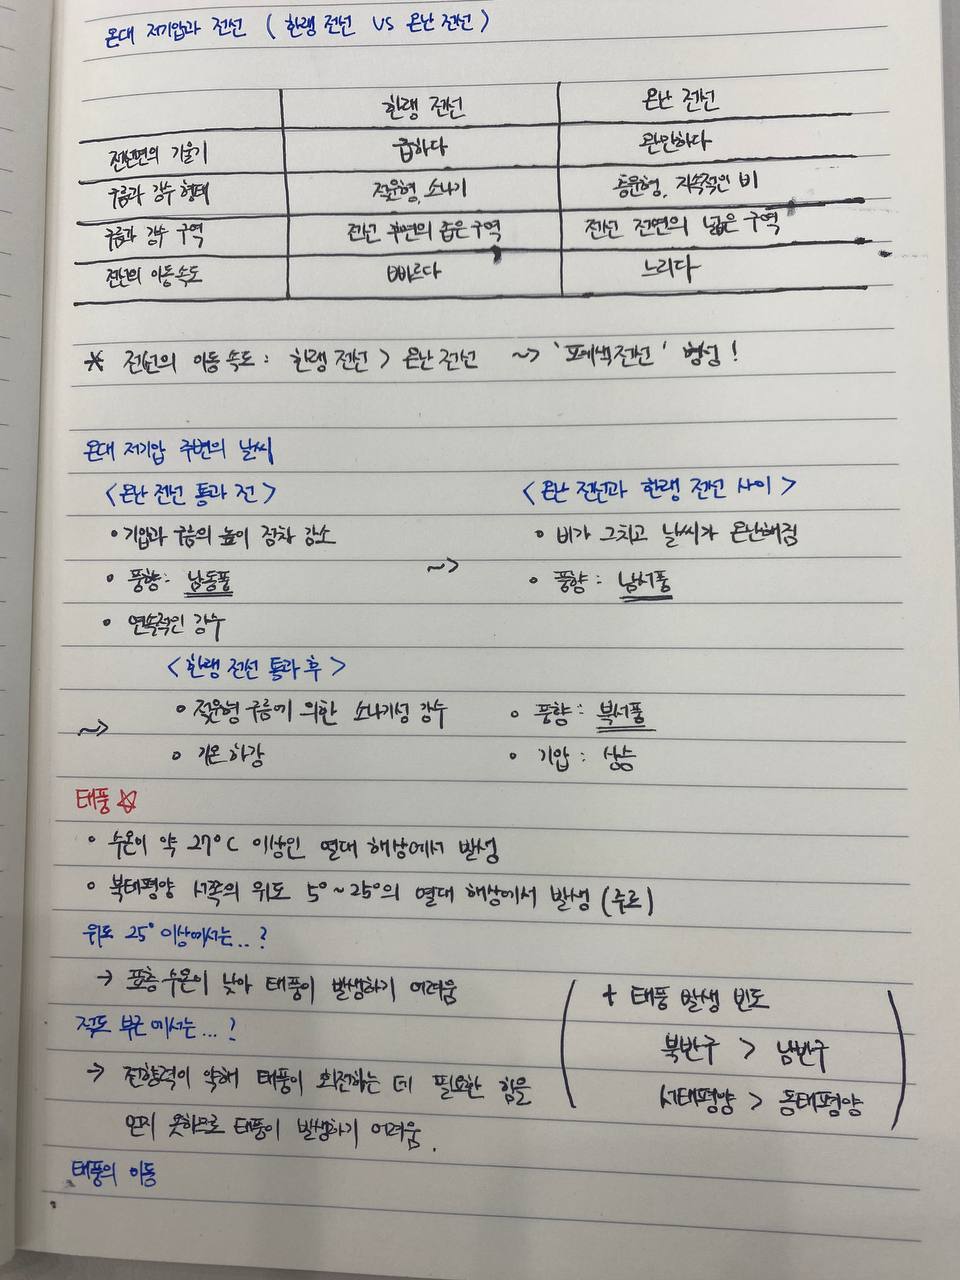 온대 저기압과 전선 ( 한랭 전선 VS 온난 전선 )
한랭 전선 온난 전선
전선면의 기울기 급하다 완만하다
구름과 강수 형태 적운형, 소나기 층운형, 지속적인 비
구름과 강수 구역 전선 후면의 좁은 구역 전선 전면의 넓은 구역
전선의 이동 속도 빠르다 느리다
* 전선의 이동 속도 : 한랭 전선 > 온난 전선 ~> '폐색전선' 형성 !
온대 저기압 주변의 날씨
<온난 전선 통과 전>
• 기압과 구름의 높이 점차 감소
• 풍향 : 남동풍
• 연속적인 강수
~>
<온난 전선과 한랭 전선 사이>
• 비가 그치고 날씨가 온난해짐
• 풍향 : 남서풍
<한랭 전선 통과 후>
~>
• 적운형 구름에 의한 소나기성 강수
• 기온 하강
• 풍향 : 북서풍
• 기압 : 상승
태풍 ☆
• 수온이 약 27°C 이상인 열대 해상에서 발생
• 북태평양 서쪽의 위도 5°~25°의 열대 해상에서 발생 (주로)
위도 25° 이상에서는...?
→ 표층 수온이 낮아 태풍이 발생하기 어려움
적도 부근에서는...?
→ 전향력이 약해 태풍이 회전하는 데 필요한 힘을
얻지 못하므로 태풍이 발생하기 어려움.
( + 태풍 발생 빈도
북반구 > 남반구
서태평양 > 동태평양 )
태풍의 이동